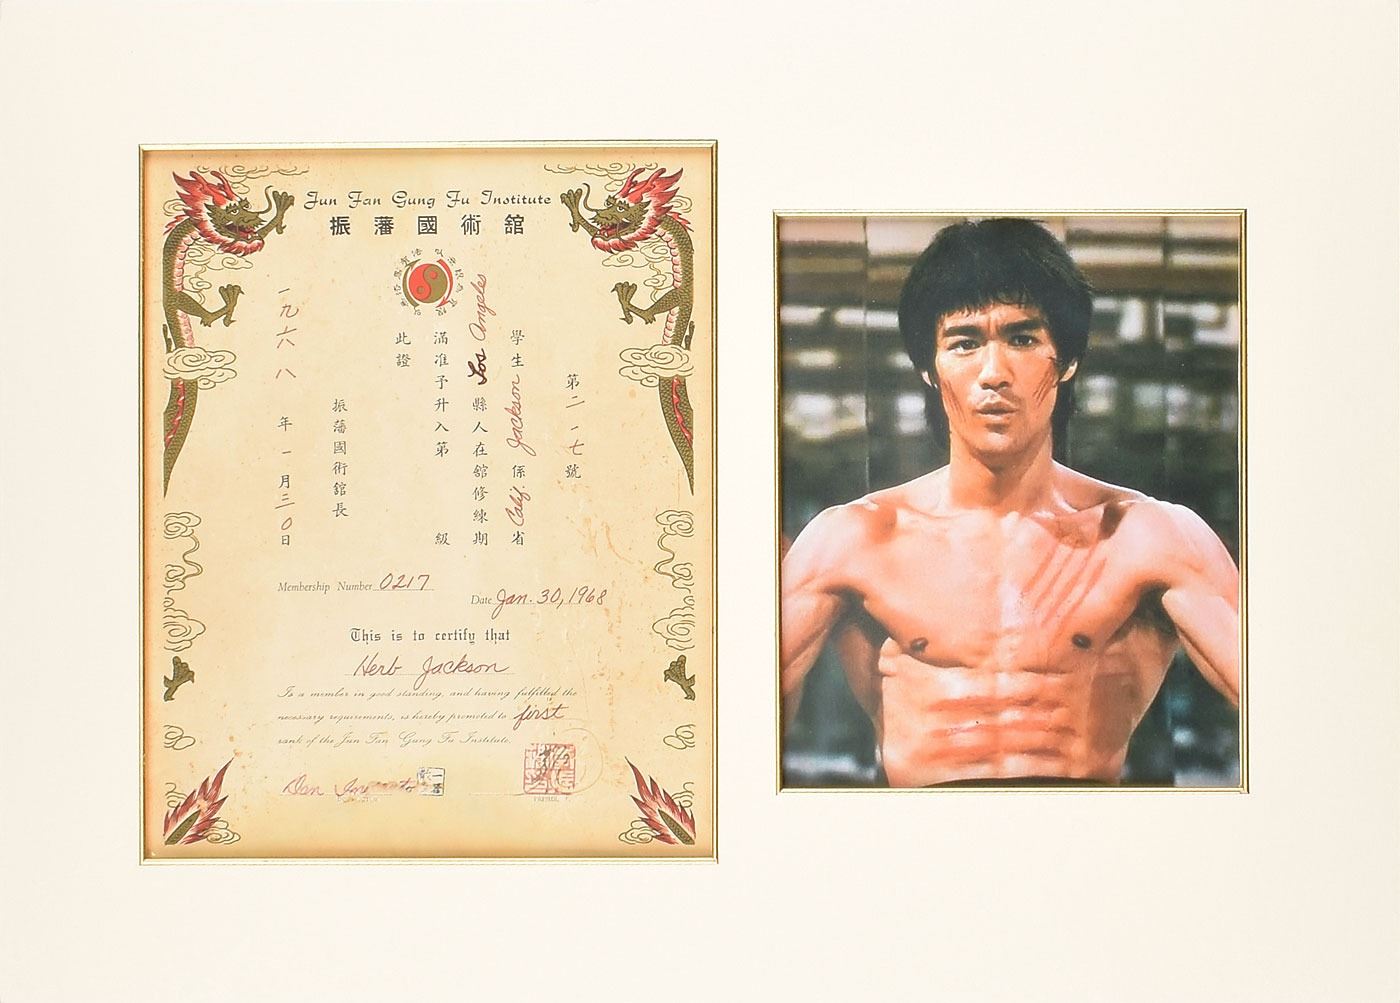 Jun Fan Gung Fu Institute
振藩國術舘
第二一七號
學生 Jackson 係 Calif. 省
Los Angeles 縣人在舘修練期
滿准予升入第 級
此證
振藩國術舘長
一九六八年一月三0日
Membership Number 0217
Date Jan. 30, 1968
This is to certify that
Herb Jackson
Is a member in good standing, and having fulfilled the
necessary requirements, is hereby promoted to first
rank of the Jun Fan Gung Fu Institute.
Dan